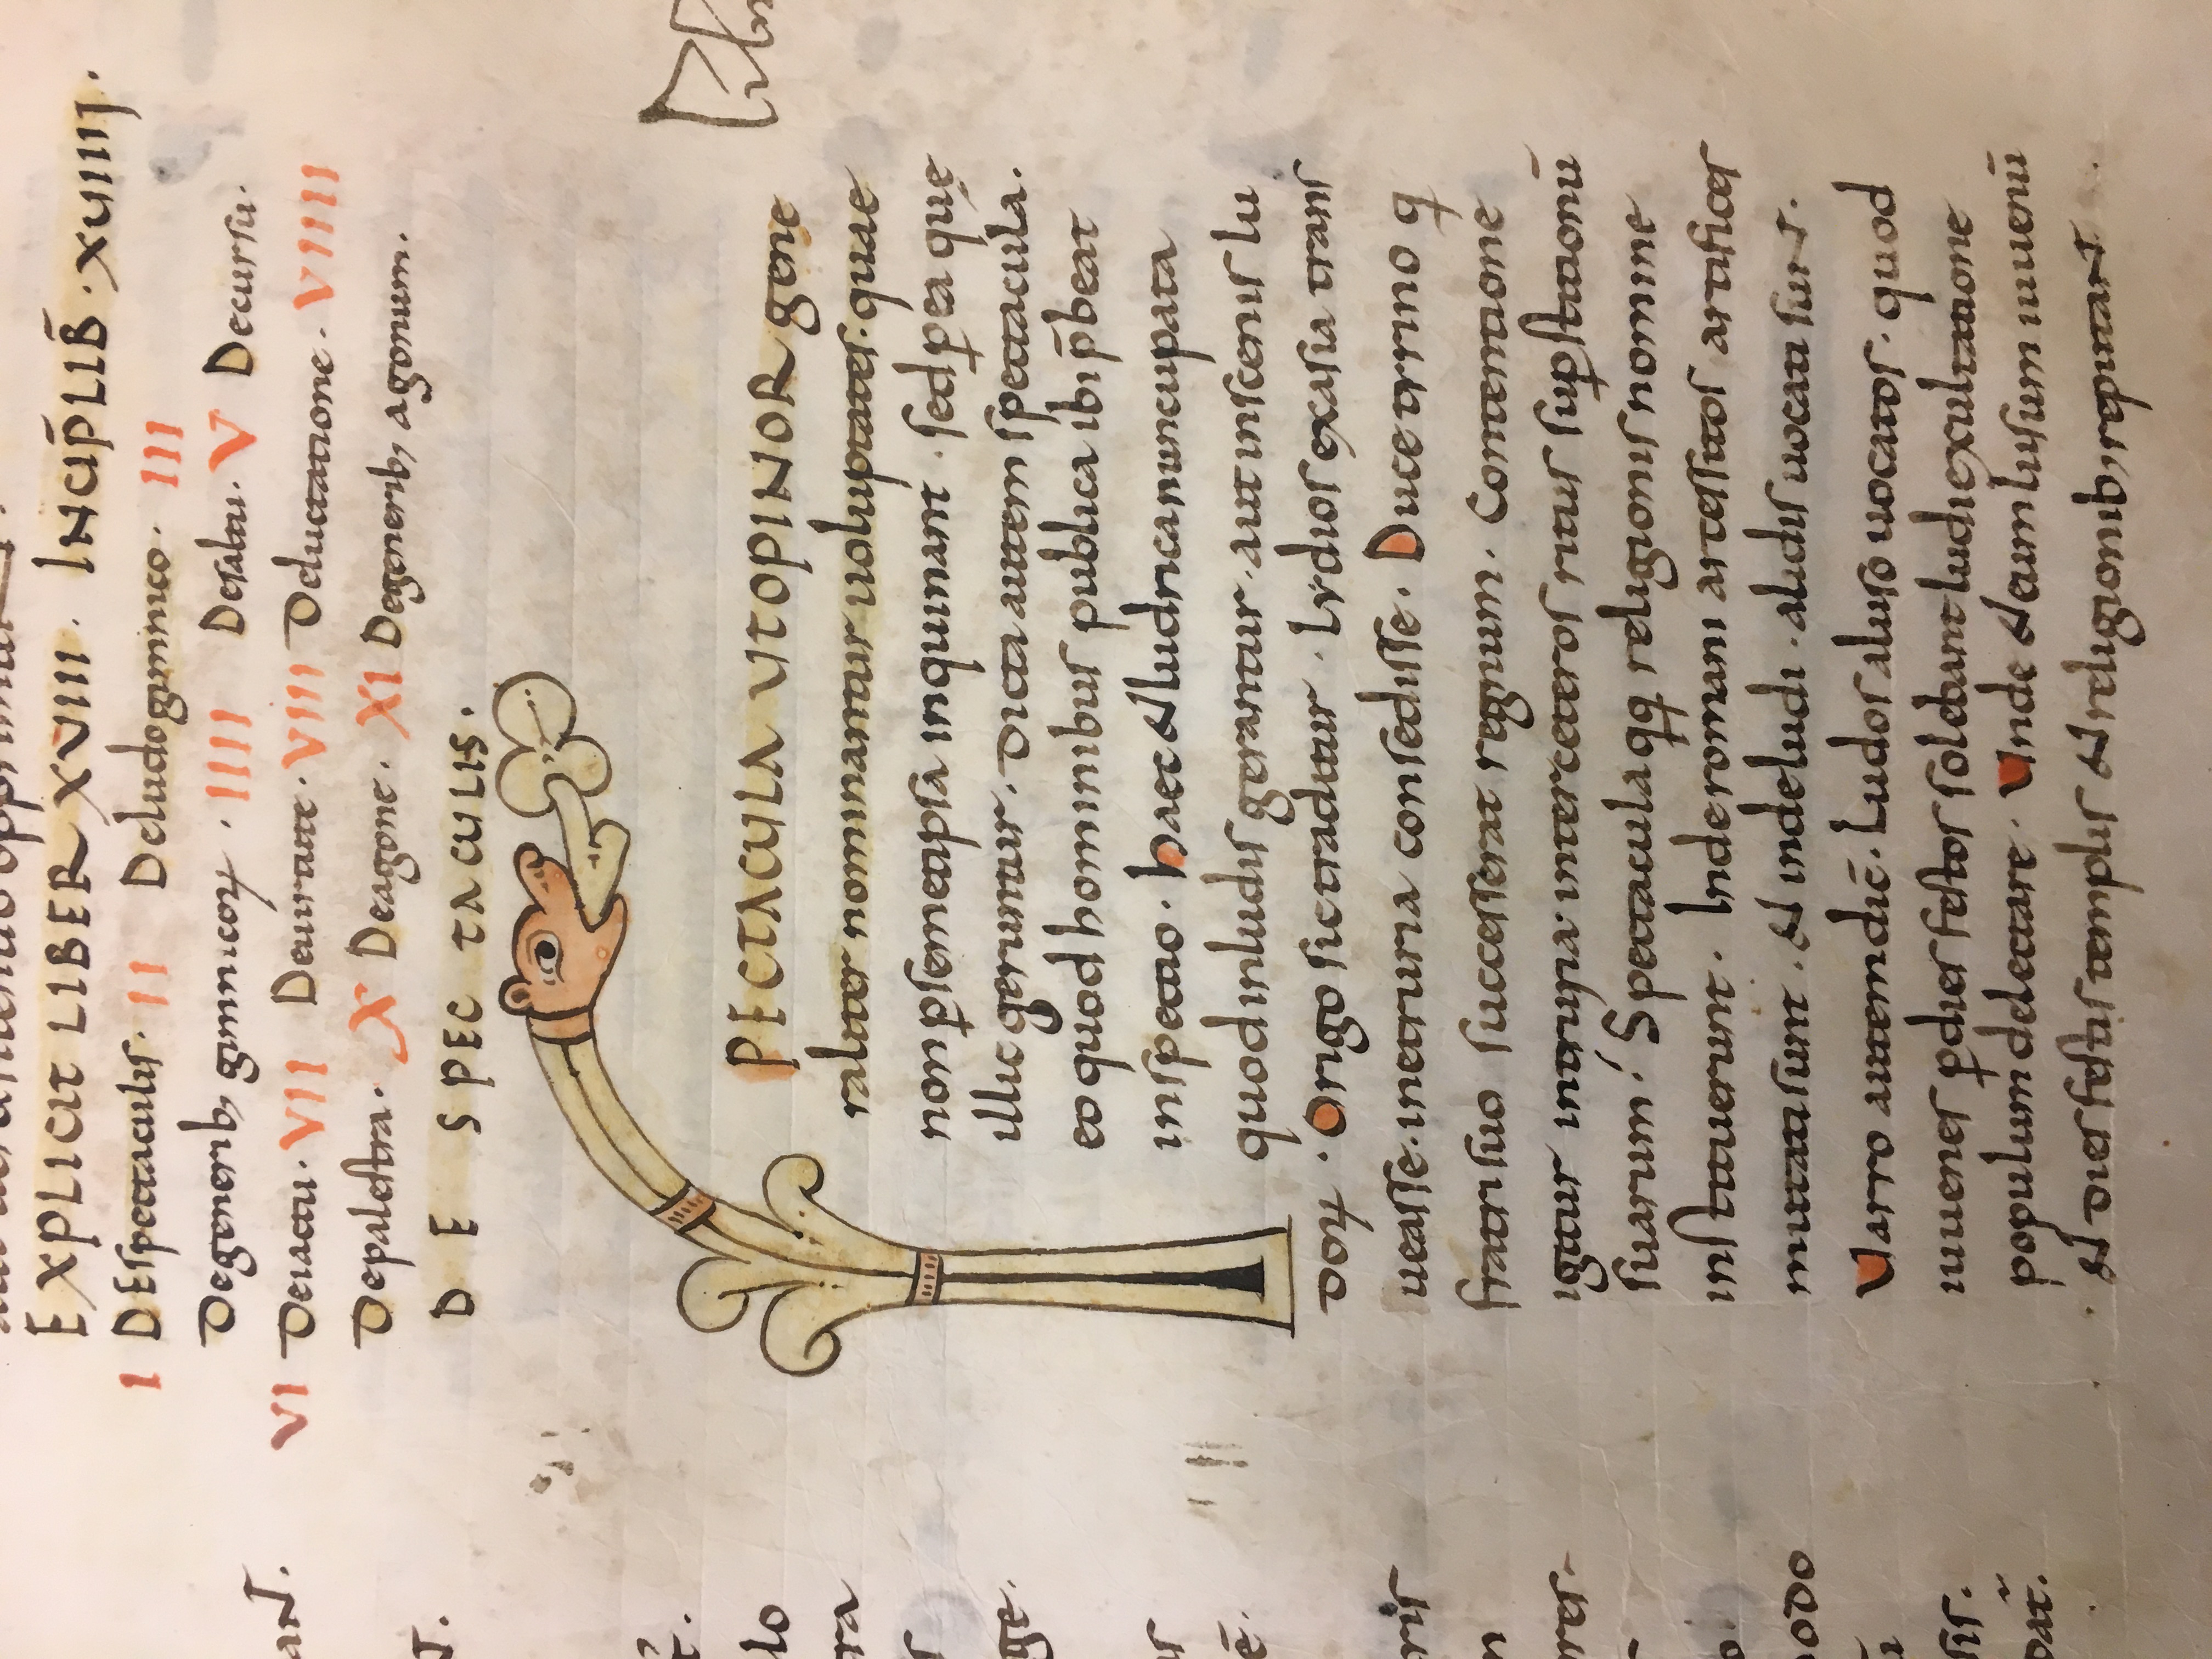 EXPLICIT LIBER XVIII. INCIP̄ LIB̄. XVIIII.
I DEspectaculis. II Deludo gimnico. III
Degenerib; gimnicoꝝ. IIII Desaltu. V Decursu.
VI Deiactu. VII Deuirtute. VIII Deluctatione. VIIII
Depalestra. X Deagone. XI Degenerib; agonum.
DE SPECTACULIS.
PECTACULA UTOPINOR gene
raliter nominantur uoluptates. quae
non ꝑ semetipsa inquinant. sed ꝑ ea quę
illic geruntur. Dicta autem spectacula.
eo quod hominibus publica ibi p̄beat
inspectio. haec & ludrica nuncupata
quod in ludis gerantur. aut in scenis lu
doꝝ. Origo sic traditur. lydios ex asia trans
ueasse. in etruria consedisse. Duce tyrrno q
fratri suo successerat regnum. Contentione
igitur in etruria inter ceteros ritus suꝑstitionū
suarum. Spectacula qq religionis nomine
instituerunt. Inde romani arcessitos artifices
mutuati sunt. & inde ludi. a ludis uocati sunt.
Varro autem dic̄. Ludos a luso uocatos. quod
iuuenes ꝑ dies festos solebant ludi exultatione
populum delectare. Vnde & eam lusum iuuenū
& dies festis templis & religionib; reputant.
ant.
lo
ra
ge.
ris
odo
sis.